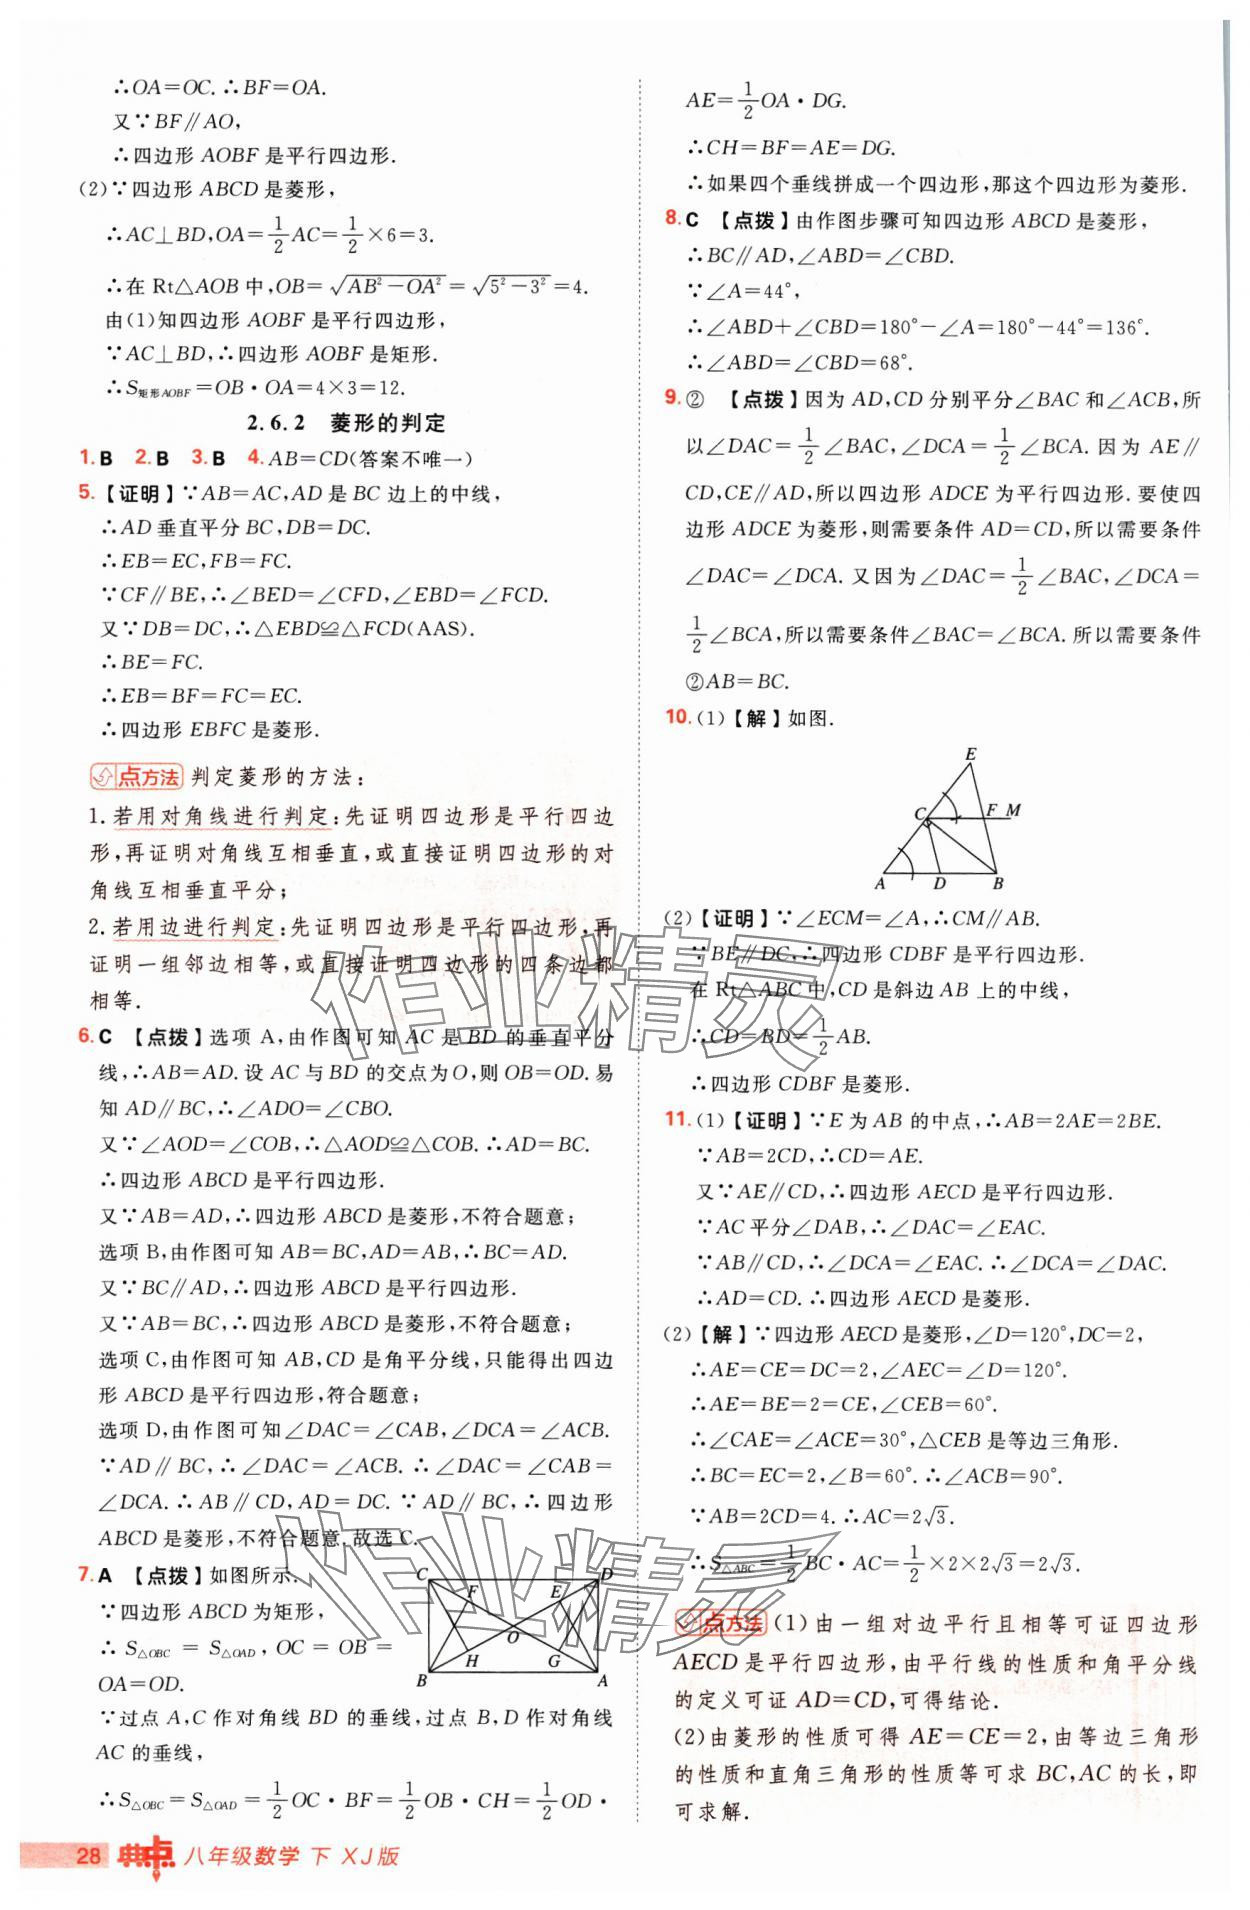 ∴OA=OC. ∴BF=OA.
又∵BF∥AO,
∴四边形 AOBF 是平行四边形.
(2)∵四边形 ABCD 是菱形,
∴AC⊥BD,OA=1/2AC=1/2×6=3.
∴在 Rt△AOB 中,OB=√(AB²-OA²)=√(5²-3²)=4.
由(1)知四边形 AOBF 是平行四边形,
∵AC⊥BD,∴四边形 AOBF 是矩形.
∴S矩形AOBF=OB·OA=4×3=12.
2.6.2 菱形的判定
1. B 2. B 3. B 4. AB=CD(答案不唯一)
5.【证明】∵AB=AC,AD 是 BC 边上的中线,
∴AD 垂直平分 BC,DB=DC.
∴EB=EC,FB=FC.
∵CF∥BE,∴∠BED=∠CFD,∠EBD=∠FCD.
又∵DB=DC,∴△EBD≌△FCD(AAS).
∴BE=FC.
∴EB=BF=FC=EC.
∴四边形 EBFC 是菱形.
点方法 判定菱形的方法:
1. 若用对角线进行判定:先证明四边形是平行四边
形,再证明对角线互相垂直,或直接证明四边形的对
角线互相垂直平分;
2. 若用边进行判定:先证明四边形是平行四边形,再
证明一组邻边相等,或直接证明四边形的四条边都
相等.
6. C 【点拨】选项 A,由作图可知 AC 是 BD 的垂直平分
线,∴AB=AD. 设 AC 与 BD 的交点为O,则 OB=OD. 易
知 AD∥BC,∴∠ADO=∠CBO.
又∵∠AOD=∠COB,∴△AOD≌△COB. ∴AD=BC.
∴四边形 ABCD 是平行四边形.
又∵AB=AD,∴四边形 ABCD 是菱形,不符合题意;
选项 B,由作图可知 AB=BC,AD=AB,∴BC=AD.
又∵BC∥AD,∴四边形 ABCD 是平行四边形.
又∵AB=BC,∴四边形 ABCD 是菱形,不符合题意;
选项 C,由作图可知 AB,CD 是角平分线,只能得出四边
形 ABCD 是平行四边形,符合题意;
选项 D,由作图可知∠DAC=∠CAB,∠DCA=∠ACB.
∵AD∥BC,∴∠DAC=∠ACB. ∴∠DAC=∠CAB=
∠DCA. ∴AB∥CD,AD=DC. ∵AD∥BC,∴四边形
ABCD 是菱形,不符合题意. 故选 C.
7. A 【点拨】如图所示.
∵四边形 ABCD 为矩形,
∴S△OBC=S△OAD,OC=OB=
OA=OD.
C F E D O H G B A
∵过点 A,C 作对角线 BD 的垂线,过点 B,D 作对角线
AC 的垂线,
∴S△OBC=S△OAD=1/2OC·BF=1/2OB·CH=1/2OD·
AE=1/2OA·DG.
∴CH=BF=AE=DG.
∴如果四个垂线拼成一个四边形,那这个四边形为菱形.
8. C 【点拨】由作图步骤可知四边形 ABCD 是菱形,
∴BC∥AD,∠ABD=∠CBD.
∵∠A=44°,
∴∠ABD+∠CBD=180°-∠A=180°-44°=136°.
∴∠ABD=∠CBD=68°.
9. ② 【点拨】因为 AD,CD 分别平分∠BAC 和∠ACB,所
以∠DAC=1/2∠BAC,∠DCA=1/2∠BCA. 因为 AE∥
CD,CE∥AD,所以四边形 ADCE 为平行四边形. 要使四
边形 ADCE 为菱形,则需要条件 AD=CD,所以需要条件
∠DAC=∠DCA. 又因为∠DAC=1/2∠BAC,∠DCA=
1/2∠BCA,所以需要条件∠BAC=∠BCA. 所以需要条件
②AB=BC.
10. (1)【解】如图.
E C F M A D B
(2)【证明】∵∠ECM=∠A,∴CM∥AB.
∵BE∥DC,∴四边形 CDBF 是平行四边形.
在 Rt△ABC 中,CD 是斜边 AB 上的中线,
∴CD=BD=1/2AB.
∴四边形 CDBF 是菱形.
11. (1)【证明】∵E 为 AB 的中点,∴AB=2AE=2BE.
∵AB=2CD,∴CD=AE.
又∵AE∥CD,∴四边形 AECD 是平行四边形.
∵AC 平分∠DAB,∴∠DAC=∠EAC.
∵AB∥CD,∴∠DCA=∠EAC. ∴∠DCA=∠DAC.
∴AD=CD. ∴四边形 AECD 是菱形.
(2)【解】∵四边形 AECD 是菱形,∠D=120°,DC=2,
∴AE=CE=DC=2,∠AEC=∠D=120°.
∴AE=BE=2=CE,∠CEB=60°.
∴∠CAE=∠ACE=30°,△CEB 是等边三角形.
∴BC=EC=2,∠B=60°. ∴∠ACB=90°.
∵AB=2CD=4. ∴AC=2√3.
∴S△ABC=1/2BC·AC=1/2×2×2√3=2√3.
点方法 (1)由一组对边平行且相等可证四边形
AECD 是平行四边形,由平行线的性质和角平分线
的定义可证 AD=CD,可得结论.
(2)由菱形的性质可得 AE=CE=2,由等边三角形
的性质和直角三角形的性质等可求 BC,AC 的长,即
可求解.
28 典点 八年级数学 下 XJ版
作业精灵
作业精灵